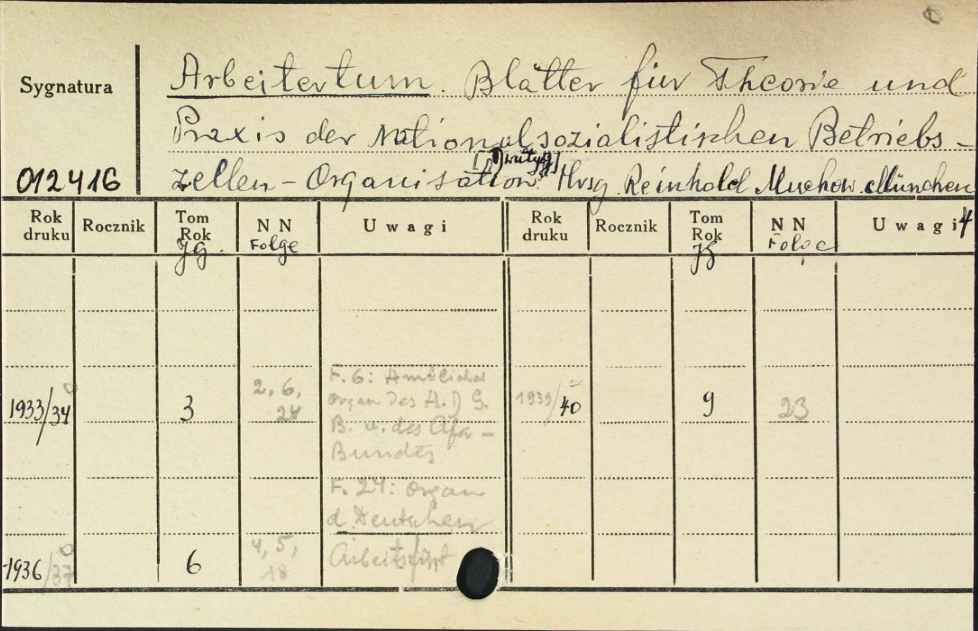 Sygnatura
012416
Arbeitertum. Blätter für Theorie und
Praxis der Nationalsozialistischen Betriebs-
zellen-Organisation Hrsg. Reinhold Muchow. München
Rok druku Rocznik Tom Rok Jg. NN Folge Uwagi Rok druku Rocznik Tom Rok Jg NN Folge Uwagi 4
1933/34 3 2, 6, 24 F. 6: Amtliches 1939/40 9 23
Organ des A. D. G.
B. u. des Afa-
Bundes
F. 24: Organ
d. Deutschen
Arbeitsfront
1936/37 6 4, 5, 18